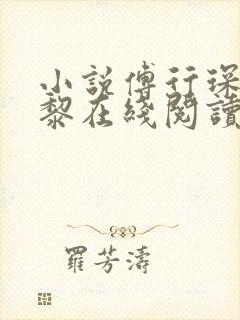 小說傅行琛
黎在綫閱讀
羅芳濤